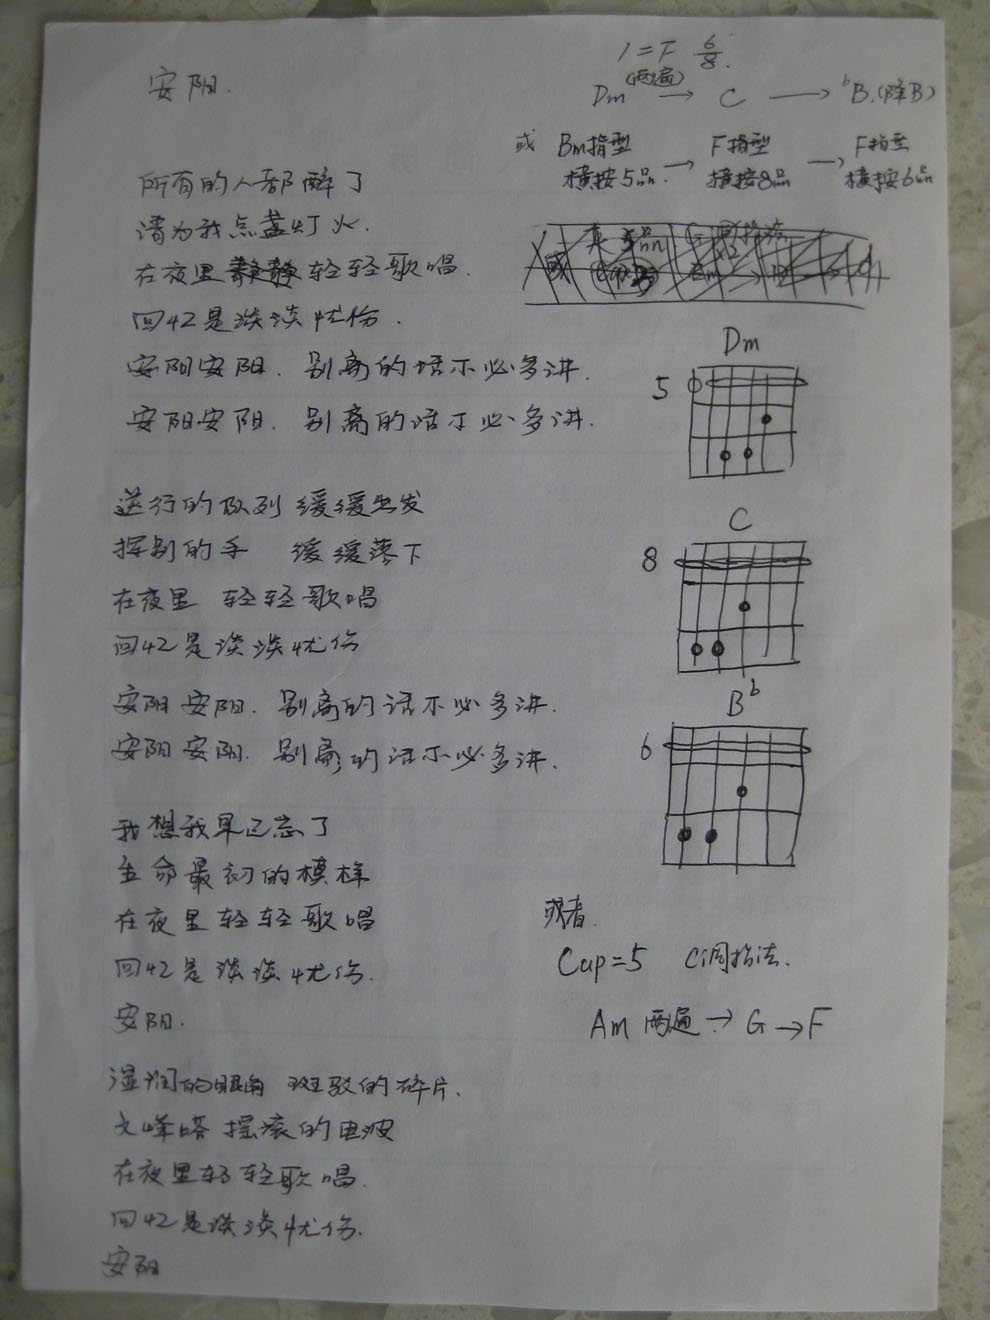 安阳.
1=F 6/8.
(两遍)
Dm → C → ᵇB.(降B)
或 Bm指型 → F指型 → F指型
横按5品. 横按8品 横按6品
所有的人都醉了
请为我点盏灯火.
在夜里 轻轻歌唱.
回忆是淡淡忧伤.
安阳安阳. 别离的话不必多讲.
安阳安阳. 别离的话不必多讲.
送行的队列 缓缓出发
挥别的手 缓缓落下
在夜里 轻轻歌唱
回忆是淡淡忧伤
安阳安阳. 别离的话不必多讲.
安阳安阳. 别离的话不必多讲.
我想我早已忘了
生命最初的模样
在夜里轻轻歌唱
回忆是淡淡忧伤.
安阳.
湿润的眼角 斑驳的碎片.
文峰塔 摇滚的电波
在夜里轻轻歌唱.
回忆是淡淡忧伤.
安阳
Dm
5
C
8
Bᵇ
6
或者.
Cap=5 C调指法.
Am 两遍 → G → F